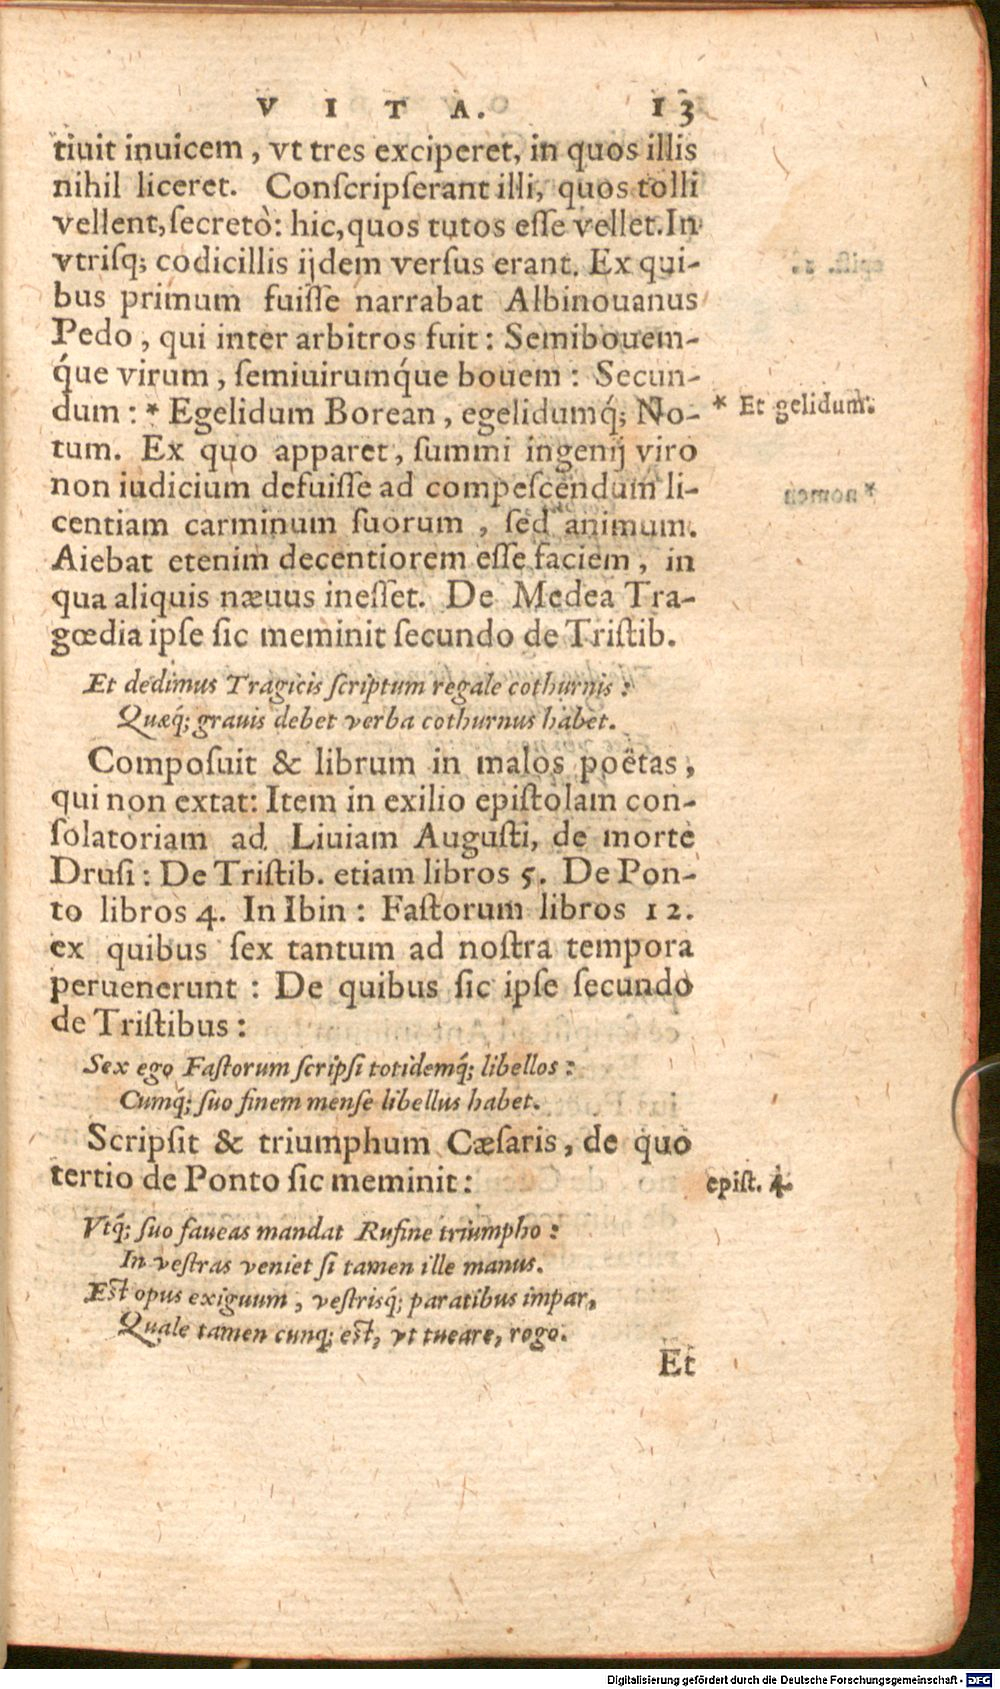 VITA. 13
tiuit inuicem, vt tres exciperet, in quos illis
nihil liceret. Conscripserant illi, quos tolli
vellent, secretò: hic, quos tutos esse vellet. In
vtrisq; codicillis ijdem versus erant. Ex qui-
bus primum fuisse narrabat Albinouanus
Pedo, qui inter arbitros fuit: Semibouem-
q́ue virum, semiuirumq́ue bouem: Secun-
dum: * Egelidum Borean, egelidumq́; No-
* Et gelidum.
tum. Ex quo apparet, summi ingenij viro
non iudicium defuisse ad compescendum li-
centiam carminum suorum, sed animum.
Aiebat etenim decentiorem esse faciem, in
qua aliquis næuus inesset. De Medea Tra-
gœdia ipse sic meminit secundo de Tristib.
Et dedimus Tragicis scriptum regale cothurnis:
Quæq́; grauis debet verba cothurnus habet.
Composuit & librum in malos poëtas,
qui non extat: Item in exilio epistolam con-
solatoriam ad Liuiam Augusti, de morte
Drusi: De Tristib. etiam libros 5. De Pon-
to libros 4. In Ibin: Fastorum libros 12.
ex quibus sex tantum ad nostra tempora
peruenerunt: De quibus sic ipse secundo
de Tristibus:
Sex ego Fastorum scripsi totidemq́; libellos:
Cumq́; suo finem mense libellus habet.
Scripsit & triumphum Cæsaris, de quo
tertio de Ponto sic meminit:
epist. 4.
Vtq́; suo faueas mandat Rufine triumpho:
In vestras veniet si tamen ille manus.
Est opus exiguum, vestrisq́; paratibus impar,
Quale tamen cunq; est, vt tueare, rogo.
Et
Digitalisierung gefördert durch die Deutsche Forschungsgemeinschaft - DFG